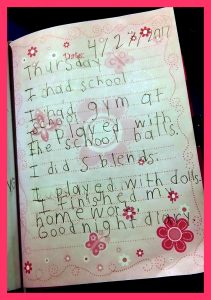 Date: 4/27/2017
Thursday
I had school.
I had gym at
school.
I played with
the school balls.
I did s blends.
I played with dolls.
I finished my
homework.
Goodnight diary.